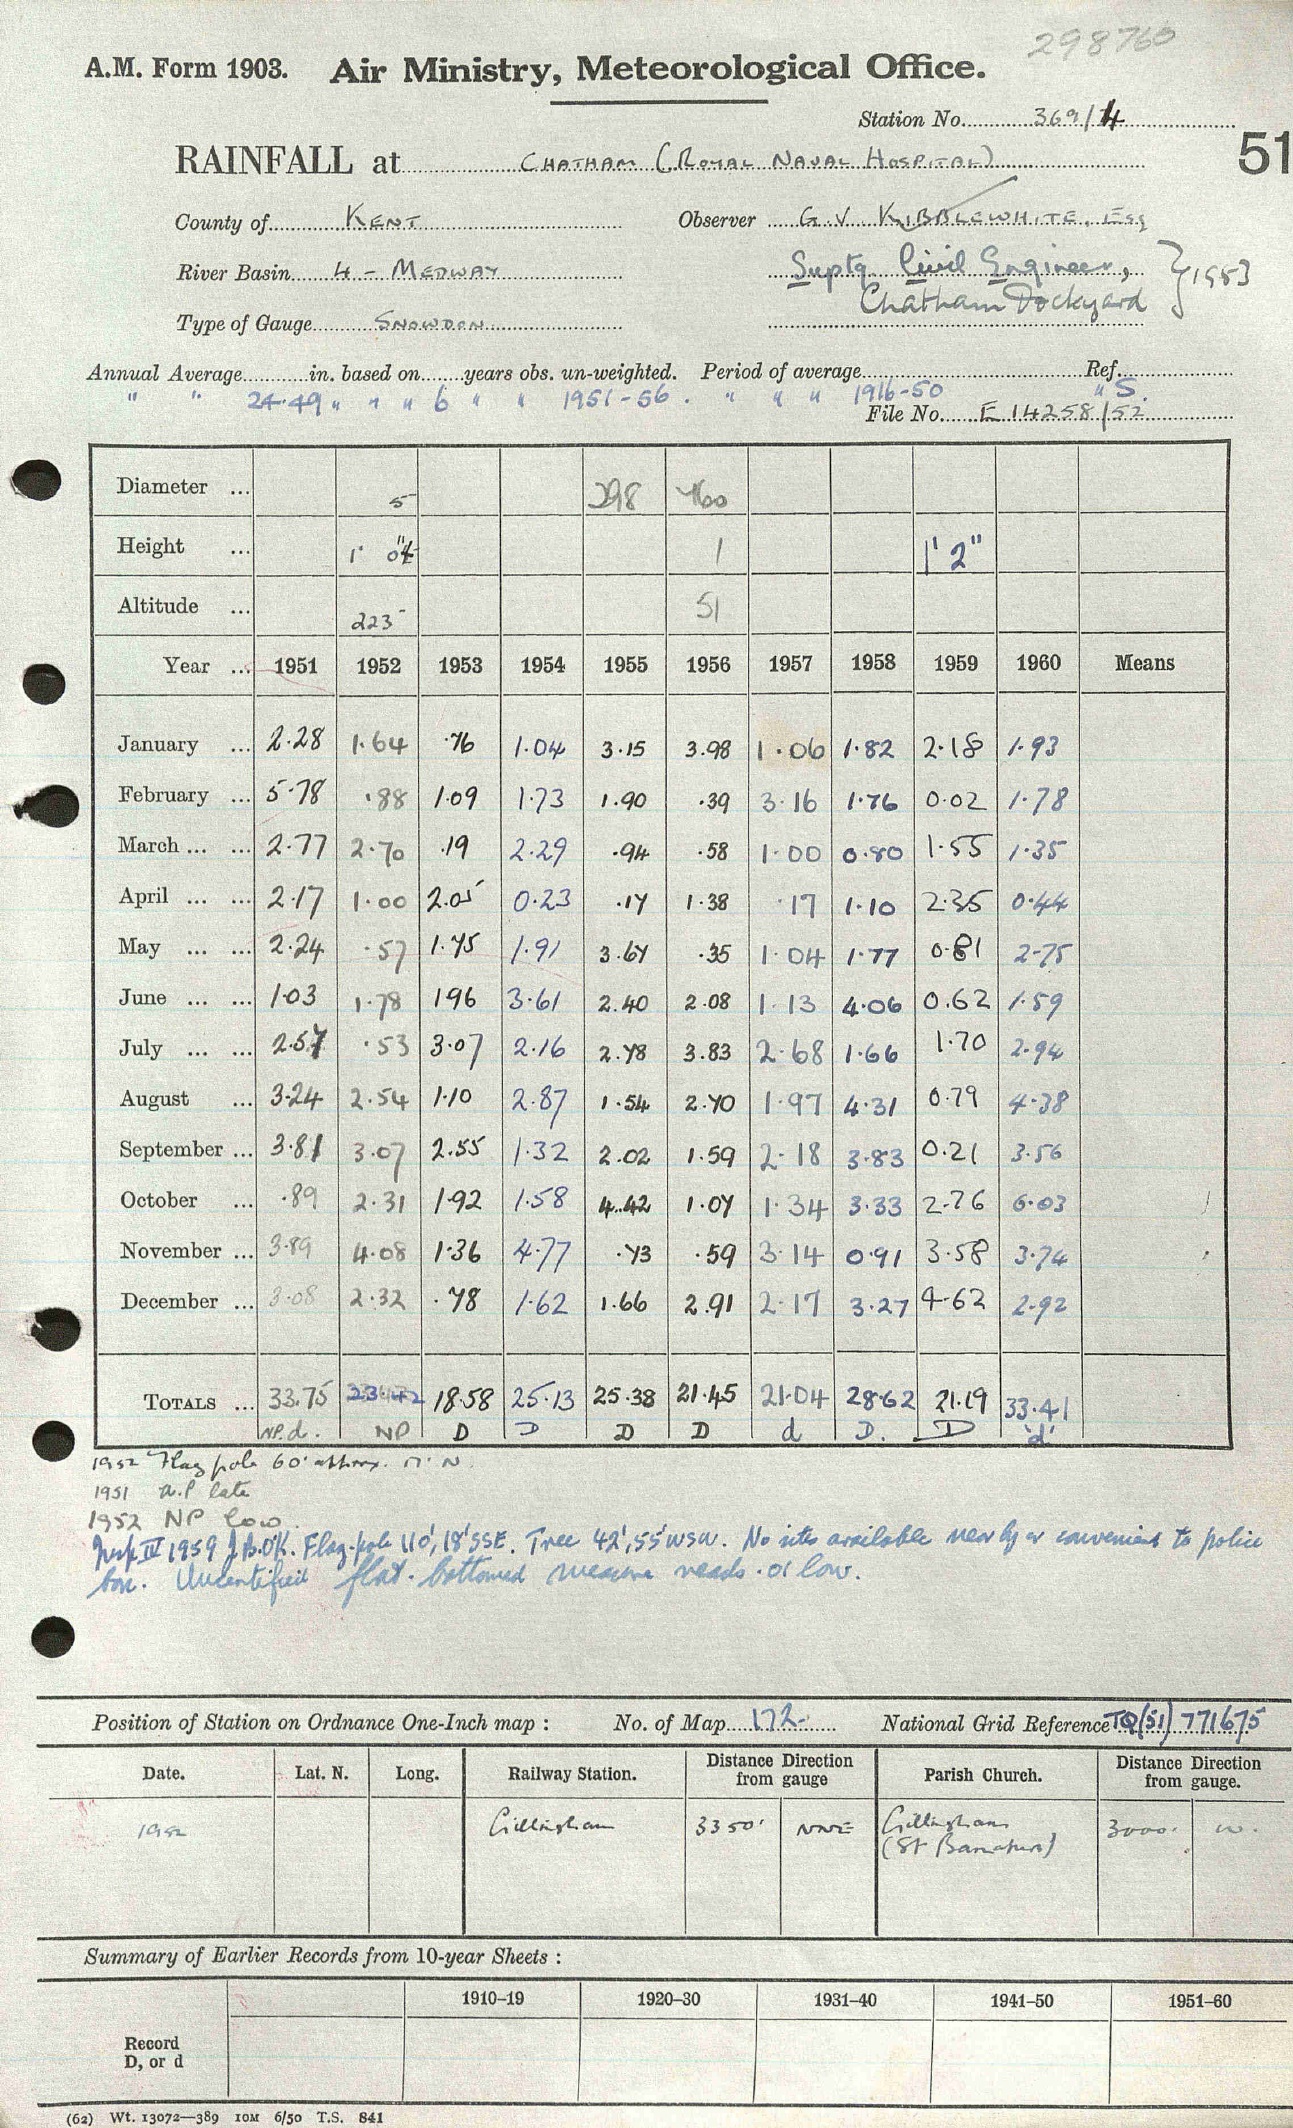 298760
A.M. Form 1903. Air Ministry, Meteorological Office.
Station No. 369/4
51
RAINFALL at CHATHAM (ROYAL NAVAL HOSPITAL)
County of KENT Observer G.V. KIBBLEWHITE, Esq
River Basin 4 - MEDWAY Suptg Civil Engineer, } 1953
Chatham Dockyard
Type of Gauge SNOWDON
Annual Average in. based on years obs. un-weighted. Period of average Ref.
" " 24.49 " " " 6 " " 1951-56. " " " 1916-50 " S.
File No. E 14258/52
Diameter ... 5 298 760
Height ... 1' 0" 1 1' 2"
Altitude ... 223 51
Year ... 1951 1952 1953 1954 1955 1956 1957 1958 1959 1960 Means
January ... 2.28 1.64 .76 1.04 3.15 3.98 1.06 1.82 2.18 1.93
February ... 5.78 .88 1.09 1.73 1.90 .39 3.16 1.76 0.02 1.78
March ... ... 2.77 2.70 .19 2.29 .94 .58 1.00 0.80 1.55 1.35
April ... ... 2.17 1.00 2.05 0.23 .17 1.38 .17 1.10 2.35 0.44
May ... ... 2.24 .57 1.75 1.91 3.67 .35 1.04 1.77 0.81 2.75
June ... ... 1.03 1.78 1.96 3.61 2.40 2.08 1.13 4.06 0.62 1.59
July ... ... 2.57 .53 3.07 2.16 2.78 3.83 2.68 1.66 1.70 2.94
August ... 3.24 2.54 1.10 2.87 1.54 2.70 1.97 4.31 0.79 4.38
September ... 3.81 3.07 2.55 1.32 2.02 1.59 2.18 3.83 0.21 3.56
October ... .89 2.31 1.92 1.58 4.42 1.07 1.34 3.33 2.76 6.03
November ... 3.89 4.08 1.36 4.77 .73 .59 3.14 0.91 3.58 3.74
December ... 3.08 2.32 .78 1.62 1.66 2.91 2.17 3.27 4.62 2.92
TOTALS ... 33.75 23.42 18.58 25.13 25.38 21.45 21.04 28.62 21.19 33.41
NP.d. NP D D D D d D. D 'd'
1952 Flag pole 60' approx. N.
1951 a.P late
1952 NP low.
Insp. IV 1959 J.B. O'K. Flag-pole 110', 18' SSE. Tree 42', 55' WSW. No sites available nearby or convenient to police
box. Uncertified flat-bottomed measure reads .01 low.
Position of Station on Ordnance One-Inch map : No. of Map 172 National Grid Reference TQ(51) 771675
Date. Lat. N. Long. Railway Station. Distance Direction from gauge Parish Church. Distance Direction from gauge.
1952 Gillingham 3350' NNE Gillingham 3000' W.
(St Barnabas)
Summary of Earlier Records from 10-year Sheets :
1910–19 1920–30 1931–40 1941–50 1951–60
Record
D, or d
(62) Wt. 13072—389 10M 6/50 T.S. 841